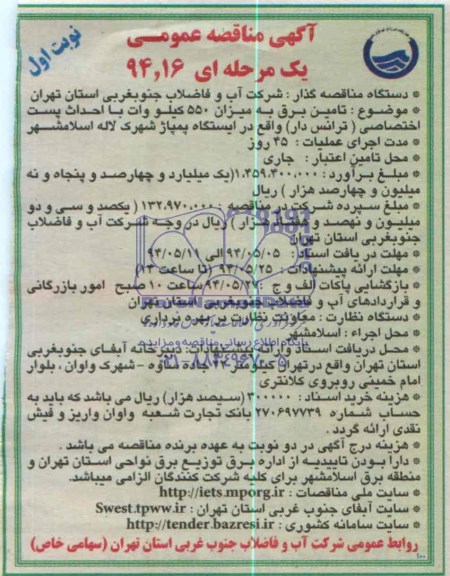 آگهی مناقصه عمومی
یک مرحله ای ۹۴,۱۶
نوبت اول
* دستگاه مناقصه گذار : شرکت آب و فاضلاب جنوبغربی استان تهران
* موضوع : تامین برق به میزان ۵۵۰ کیلو وات با احداث پست
اختصاصی ( ترانس دار) واقع در ایستگاه پمپاژ شهرک لاله اسلامشهر
* مدت اجرای عملیات : ۴۵ روز
* محل تامین اعتبار : جاری
* مبلغ برآورد : ۱.۴۵۹.۴۰۰.۰۰۰(یک میلیارد و چهارصد و پنجاه و نه
میلیون و چهارصد هزار ) ریال
* مبلغ سپرده شرکت در مناقصه : ۱۳۲.۹۷۰.۰۰۰ ( یکصد و سی و دو
میلیون و نهصد و هفتاد هزار ) ریال در وجه شرکت آب و فاضلاب
جنوبغربی استان تهران
* مهلت دریافت اسناد: ۹۴/۰۵/۰۵ الی ۹۴/۰۵/۱۱
* مهلت ارائه پیشنهادات : ۹۴/۰۵/۲۵ (تا ساعت ۱۳)
* بازگشایی پاکات الف و ج : ۹۴/۰۵/۲۷ ساعت ۱۰ صبح امور بازرگانی
و قراردادهای آب و فاضلاب جنوبغربی استان تهران
* دستگاه نظارت : معاونت نظارت بر بهره برداری
* محل اجراء : اسلامشهر
پایگاه اطلاع رسانی مناقصه و مزایده
* محل دریافت اسناد وارائه پیشنهادات: دبیرخانه آبفای جنوبغربی
۰۲۱-۸۸۳۴۹۶۷۰-۵
استان تهران واقع درتهران کیلومتر ۲۲ جاده ساوه - شهرک واوان ، بلوار
امام خمینی روبروی کلانتری
* هزینه خرید اسناد : ۳۰۰۰۰۰ (سیصدهزار) ریال می باشد که باید به
حساب شماره ۲۷۰۶۹۷۷۳۹ بانک تجارت شعبه واوان واریز و فیش
نقدی ارائه گردد .
* هزینه درج آگهی در دو نوبت به عهده برنده مناقصه می باشد .
* دارا بودن تاییدیه از اداره برق توزیع برق نواحی استان تهران و
منطقه برق اسلامشهر برای کلیه شرکت کنندگان الزامی میباشد.
* سایت ملی مناقصات : http://iets.mporg.ir
* سایت آبفای جنوب غربی استان تهران : Swest.tpww.ir
* سایت سامانه کشوری : http://tender.bazresi.ir
روابط عمومی شرکت آب و فاضلاب جنوب غربی استان تهران (سهامی خاص)